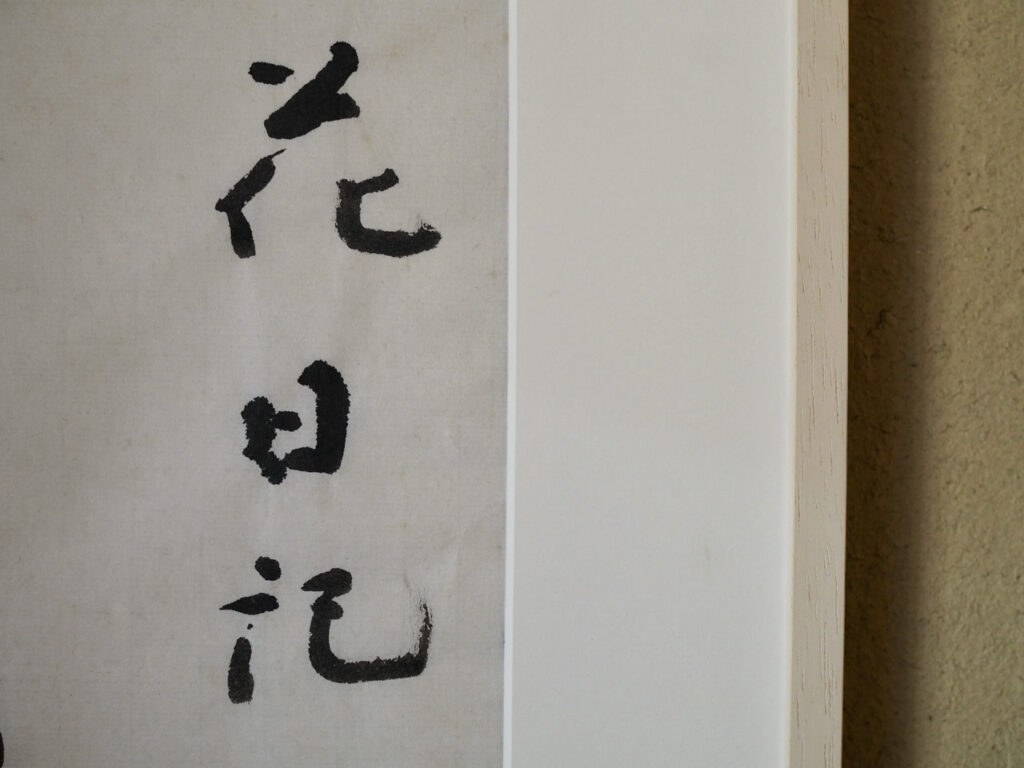 花日記